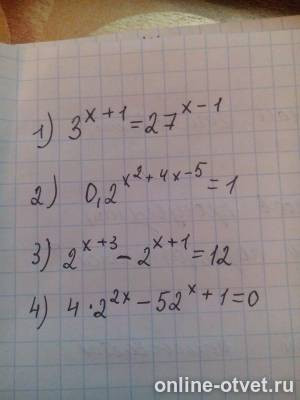 1) 3^(x+1) = 27^(x-1)
2) 0,2^(x²+4x-5) = 1
3) 2^(x+3) - 2^(x+1) = 12
4) 4·2^(2x) - 52^x + 1 = 0
online-otvet.ru